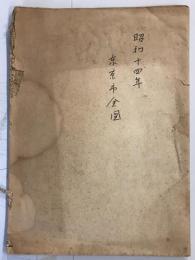 昭和十四年
東京市全図